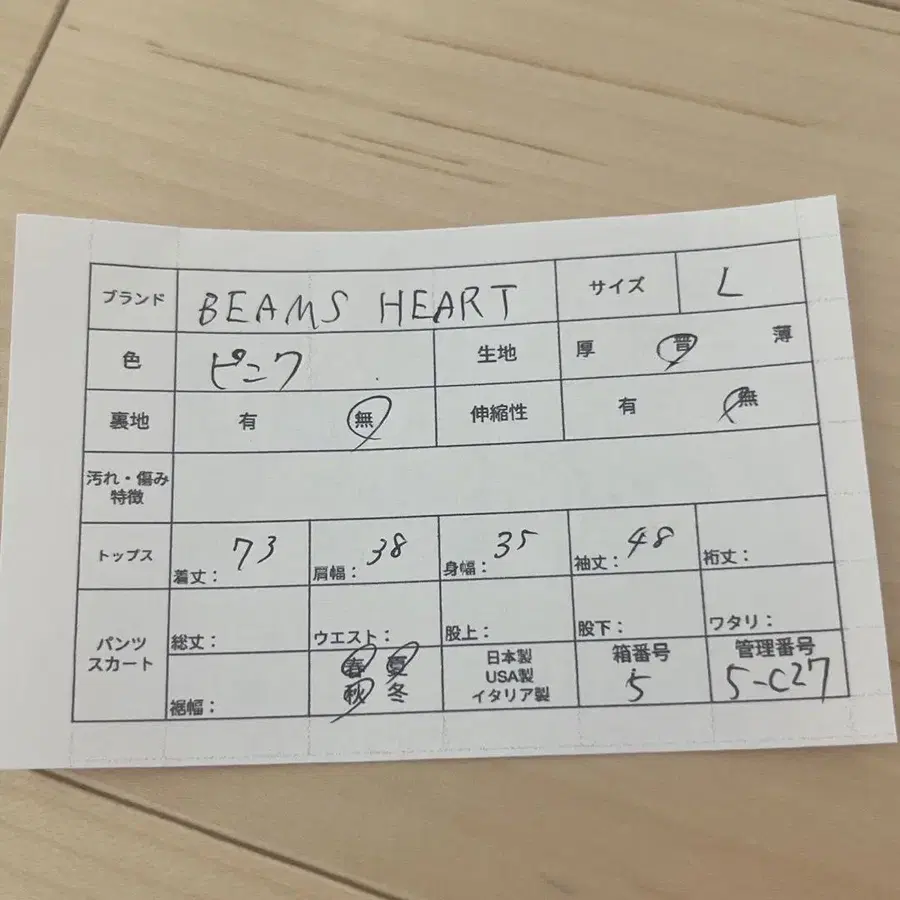 ブランド BEAMS HEART サイズ L
色 ピンク 生地 厚 普 薄
裏地 有 無 伸縮性 有 無
汚れ・傷み
特徴
トップス 着丈: 73 肩幅: 38 身幅: 35 袖丈: 48 裄丈:
パンツ
スカート
総丈: ウエスト: 股上: 股下: ワタリ:
裾幅:
春 夏
秋 冬
日本製
USA製
イタリア製
箱番号
5
管理番号
5-C27